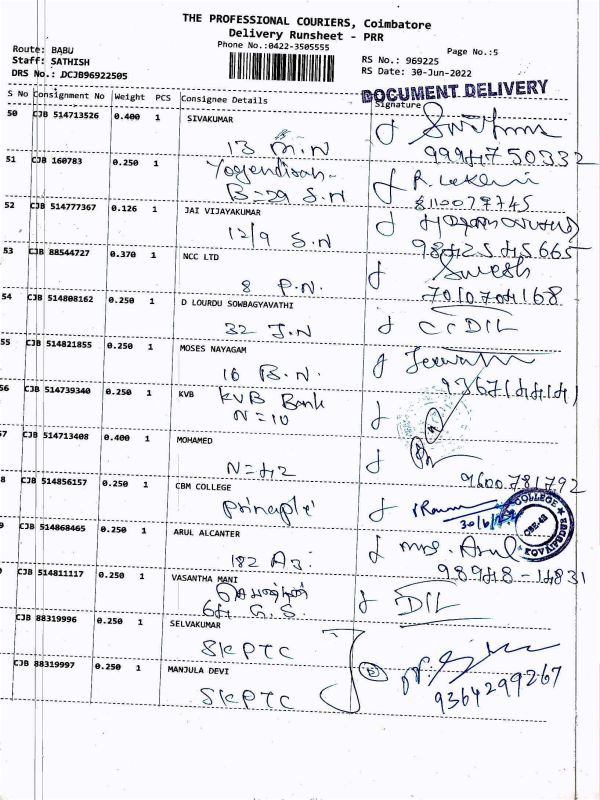 THE PROFESSIONAL COURIERS, Coimbatore
Delivery Runsheet - PRR
Phone No.:0422-3505555
Page No.:5
Route: BABU
Staff: SATHISH
DRS No.: DCJB96922505
RS No.: 969225
RS Date: 30-Jun-2022
DOCUMENT DELIVERY
S No Consignment No Weight PCS Consignee Details Signature
50 CJB 514713526 0.400 1 SIVAKUMAR
13 M.N
51 CJB 160783 0.250 1
B-29 S.N
R.
8110079745
52 CJB 514777367 0.126 1 JAI VIJAYAKUMAR
12/9 S.N
9842545665
53 CJB 88544727 0.370 1 NCC LTD
8 P.N. Suresh
7010704168
54 CJB 514808162 0.250 1 D LOURDU SOWBAGYAVATHI
32 J.N
55 CJB 514821855 0.250 1 MOSES NAYAGAM
16 B.N.
56 CJB 514739340 0.250 1 KVB
KVB Bank
N=10
57 CJB 514713408 0.400 1 MOHAMED
N=42
9600781792
8 CJB 514856157 0.250 1 CBM COLLEGE
principle
30/6/22
COLLEGE
CBE-42
KOVAIPUDUR
9 CJB 514868465 0.250 1 ARUL ALCANTER
182 Mrs. Arul
98948-14831
0 CJB 514811117 0.250 1 VASANTHA MANI
64 G.S. DIL
CJB 88319996 0.250 1 SELVAKUMAR
SKPTC
CJB 88319997 0.250 1 MANJULA DEVI
SKPTC
9364299267